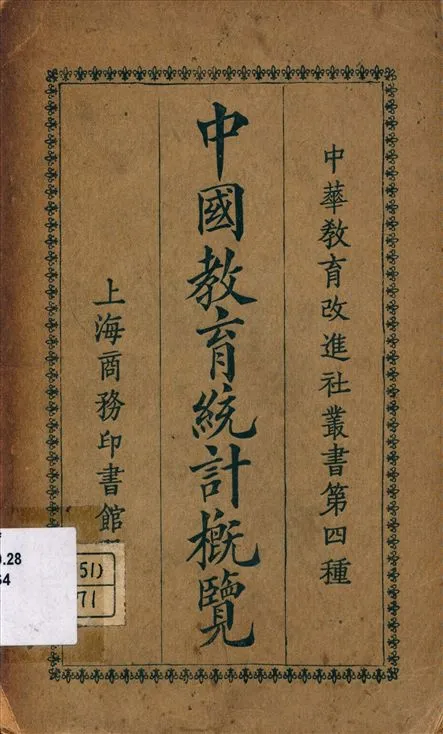 中華教育改進社叢書第四種
中國教育統計概覽
上海商務印書館
.28
64
51)
71